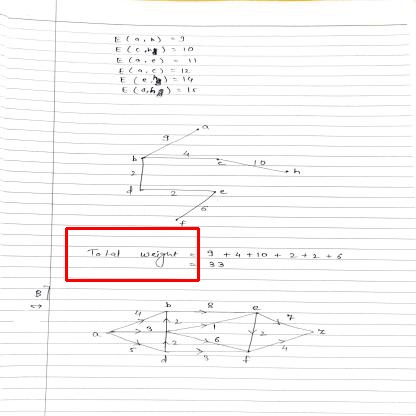 E(a,b) = 9
E(c,h) = 10
E(a,e) = 11
E(a,c) = 12
E(e,h) = 14
E(d,h) = 15
a
9
b 4 c 10 h
2
d 2 e
6
f
Total weight = 9 + 4 + 10 + 2 + 2 + 6
= 33
B]
b 8 e
4 2 7
a 3 1 2 z
5 2 6 4
d 3 f